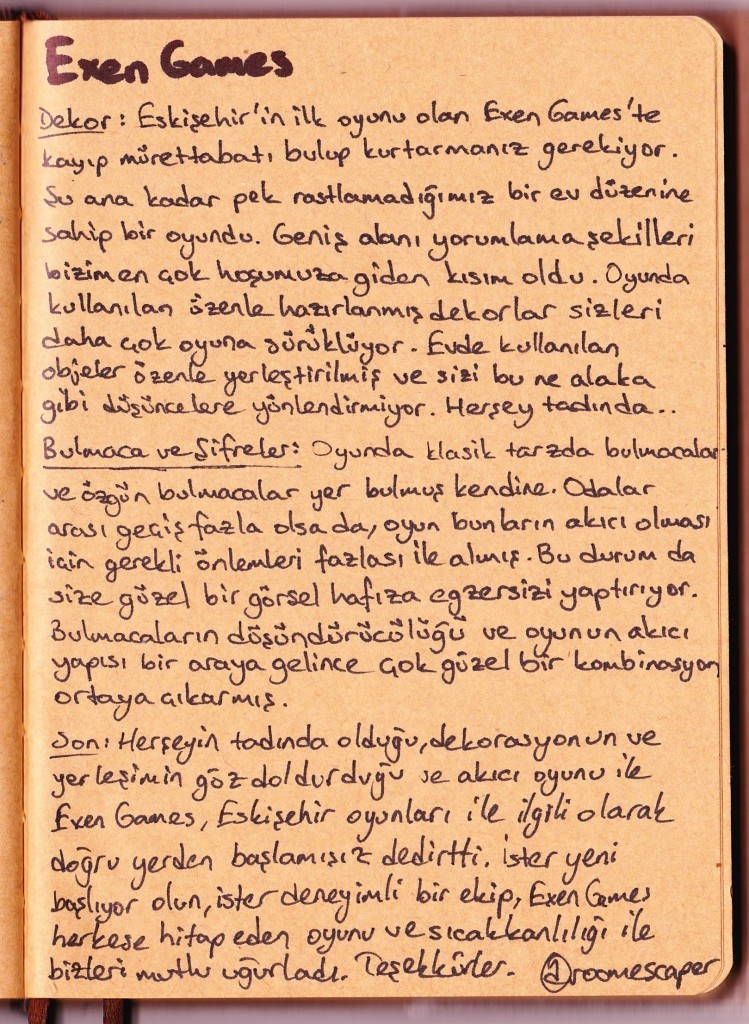 Exen Games
Dekor: Eskişehir'in ilk oyunu olan Exen Games'te
kayıp mürettabatı bulup kurtarmanız gerekiyor.
Şu ana kadar pek rastlamadığımız bir ev düzenine
sahip bir oyundu. Geniş alanı yorumlama şekilleri
bizim en çok hoşumuza giden kısım oldu. Oyunda
kullanılan özenle hazırlanmış dekorlar sizleri
daha çok oyuna sürüklüyor. Evde kullanılan
objeler özenle yerleştirilmiş ve sizi bu ne alaka
gibi düşüncelere yönlendirmiyor. Herşey tadında..
Bulmaca ve Şifreler: Oyunda klasik tarzda bulmacalar
ve özgün bulmacalar yer bulmuş kendine. Odalar
arası geçiş fazla olsa da, oyun bunların akıcı olması
için gerekli önlemleri fazlası ile almış. Bu durum da
size güzel bir görsel hafıza egzersizi yaptırıyor.
Bulmacaların düşündürücülüğü ve oyunun akıcı
yapısı bir araya gelince çok güzel bir kombinasyon
ortaya çıkarmış.
Son: Herşeyin tadında olduğu, dekorasyonun ve
yerleşimin göz doldurduğu ve akıcı oyunu ile
Exen Games, Eskişehir oyunları ile ilgili olarak
doğru yerden başlamışız dedirtti. İster yeni
başlıyor olun, ister deneyimli bir ekip, Exen Games
herkese hitap eden oyunu ve sıcakkanlılığı ile
bizleri mutlu uğurladı. Teşekkürler. @roomescaper